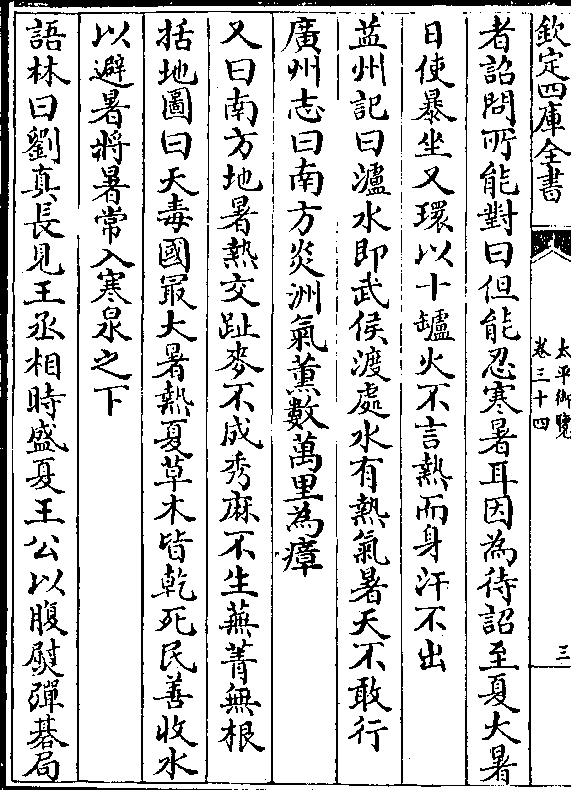 欽定四庫全書
太平御覽
卷三十四
三
者詔問所能對曰但能忍寒暑耳因為待詔至夏大暑
日使暴坐又環以十罏火不言熱而身汗不出
益州記曰瀘水即武侯渡處水有熱氣暑天不敢行
廣州志曰南方炎洲氣薰數萬里為瘴
又曰南方地暑熱交趾麥不成秀麻不生蕪菁無根
括地圖曰天毒國最大暑熱夏草木皆乾死民善收水
以避暑將暑常入寒泉之下
語林曰劉真長見王丞相時盛夏王公以腹熨彈棊局